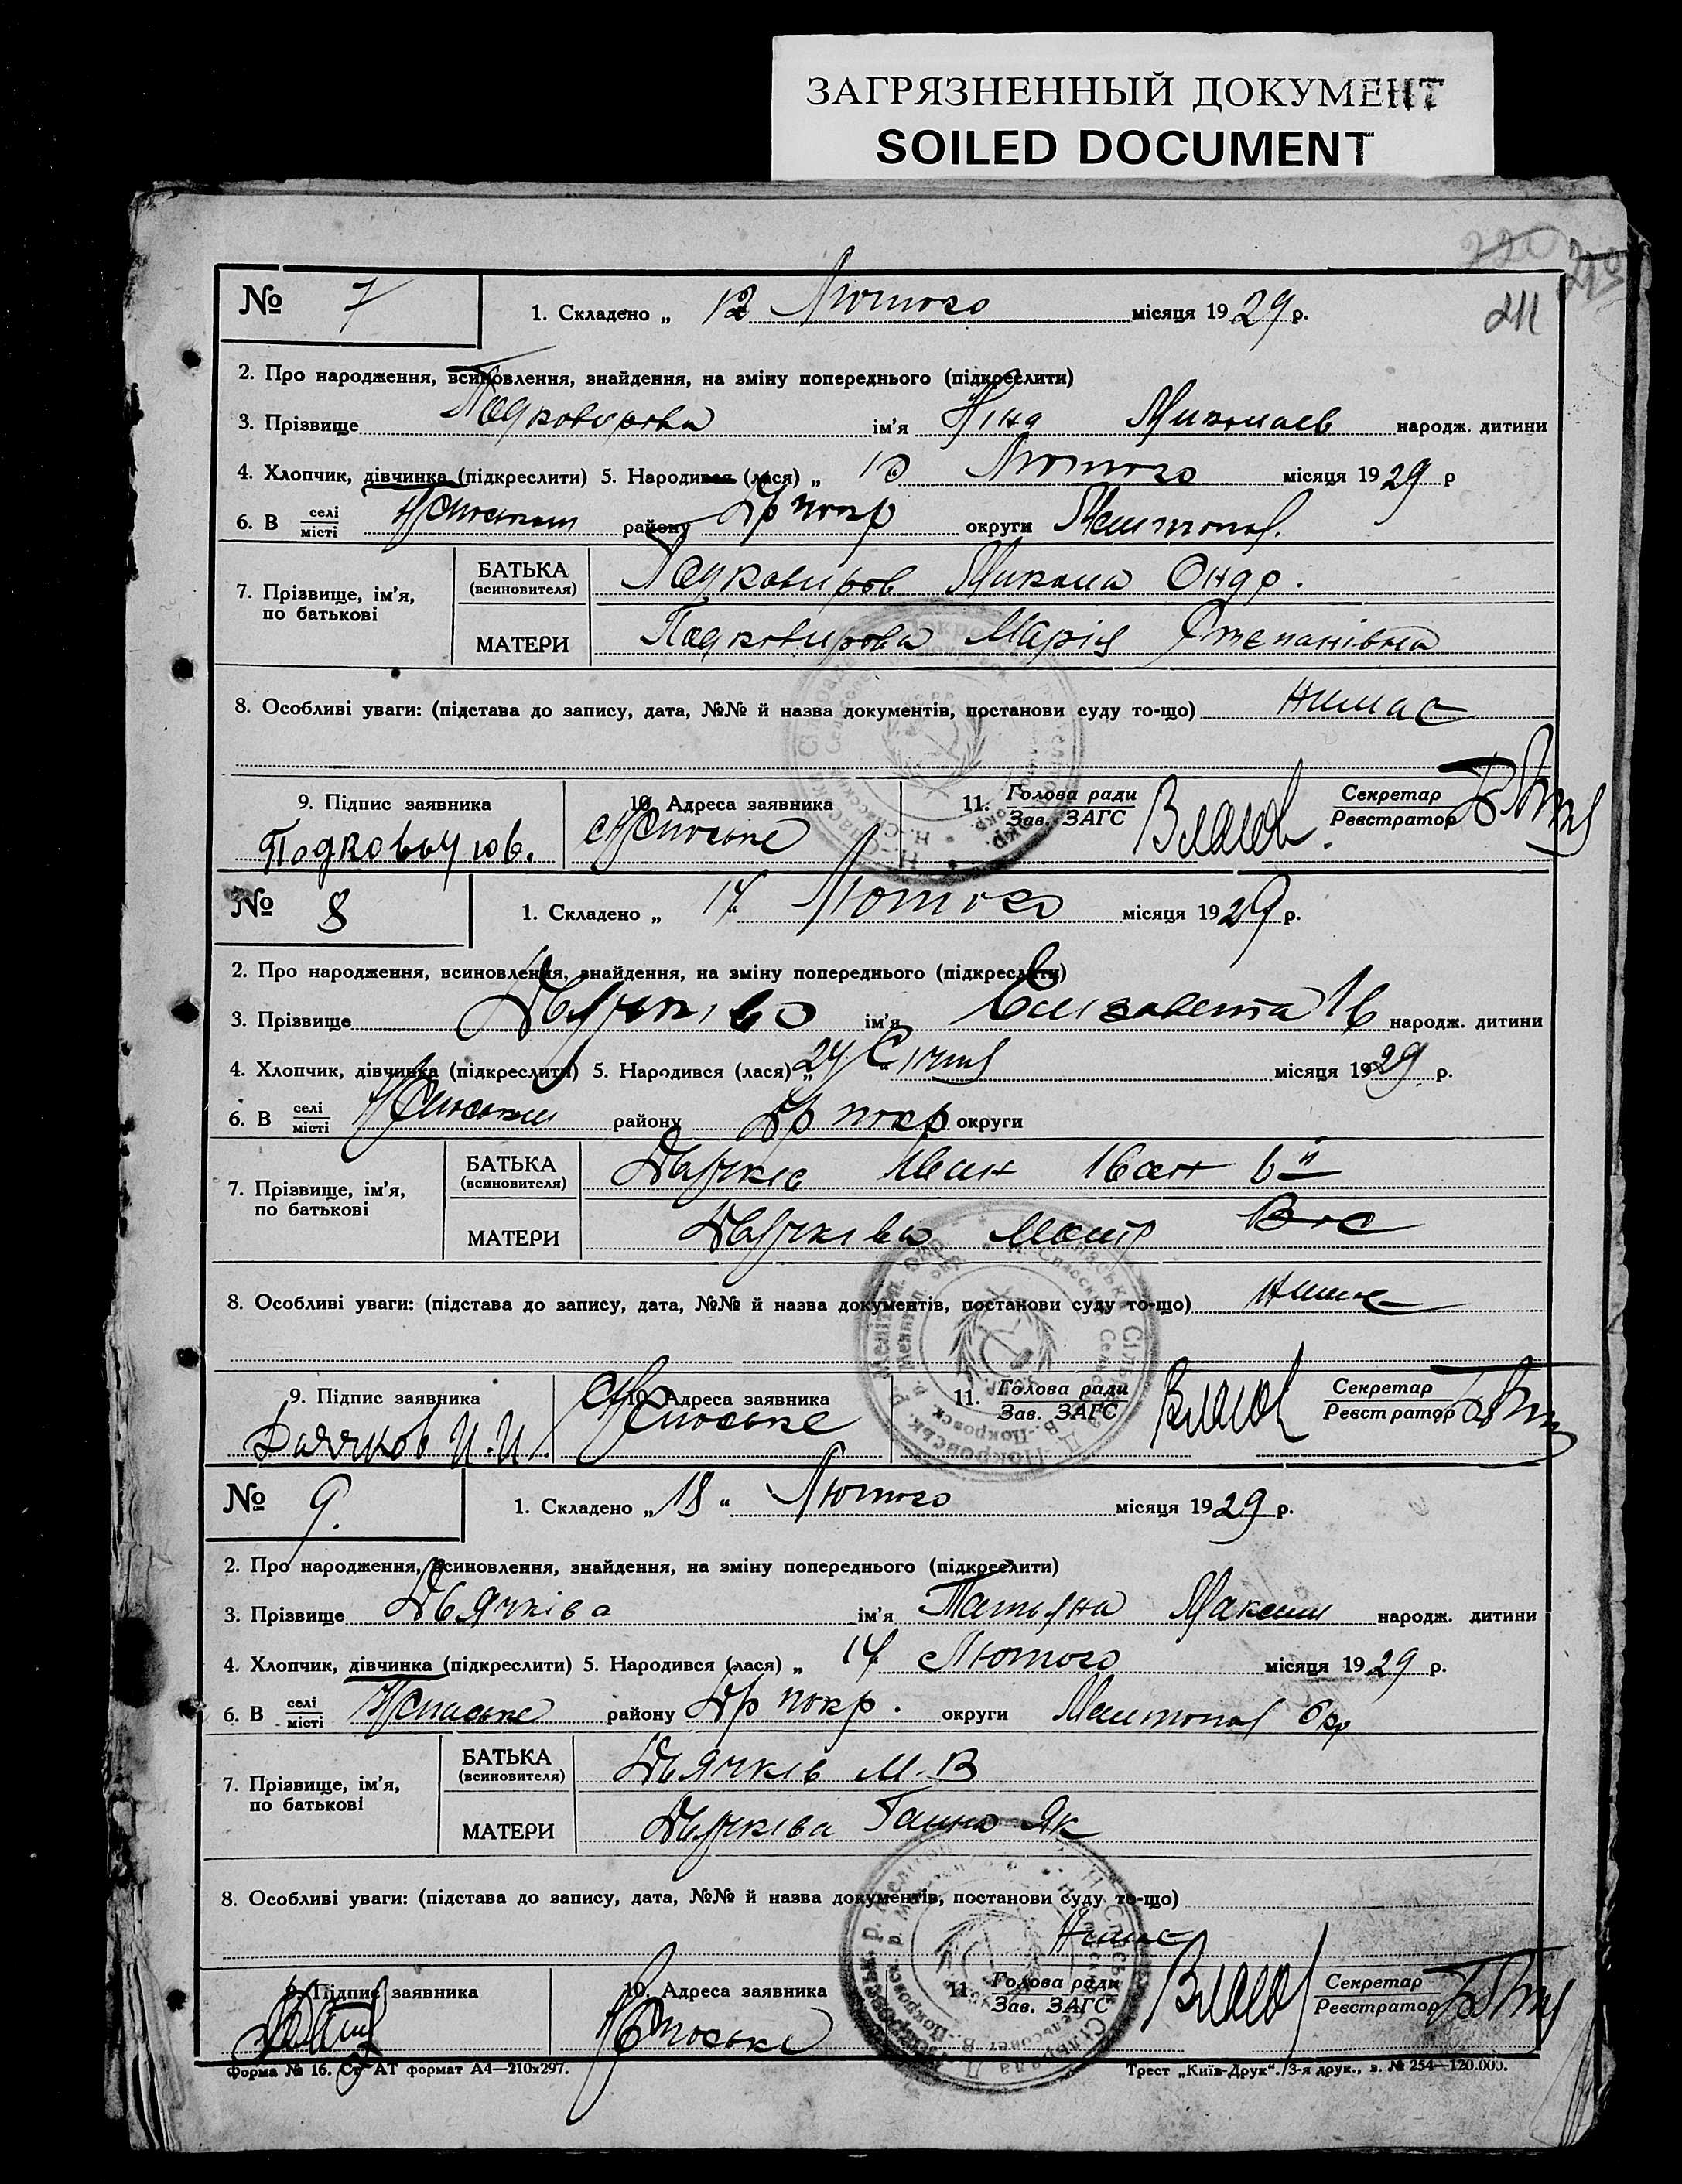 ЗАГРЯЗНЕННЫЙ ДОКУМЕНТ
SOILED DOCUMENT
211
№ 7
1. Складено „ 12 Лютого місяця 1929 р.
2. Про народження, всиновлення, знайдення, на зміну попереднього (підкреслити)
3. Прізвище Подковирова ім'я Ніна Миколаєв народж. дитини
4. Хлопчик, дівчинка (підкреслити) 5. Народився (лася) „ 10 Лютого місяця 1929 р
6. В селі місті району округи Мелитопол.
7. Прізвище, ім'я, по батькові
БАТЬКА (всиновителя) Подковиров Микола Ондр.
МАТЕРИ Подковирова Марія Степанівна
8. Особливі уваги: (підстава до запису, дата, №№ й назва документів, постанови суду то-що) Нимає
9. Підпис заявника 10. Адреса заявника 11. Голова ради Зав. ЗАГС Власов. Секретар Реєстратор
№ 8
1. Складено „ 14 Лютого місяця 1929 р.
2. Про народження, всиновлення, знайдення, на зміну попереднього (підкреслити)
3. Прізвище ім'я Елизавета Ів народж. дитини
4. Хлопчик, дівчинка (підкреслити) 5. Народився (лася) „ 24 Січня місяця 1929 р.
6. В селі місті району округи
7. Прізвище, ім'я, по батькові
БАТЬКА (всиновителя) Дьячків Іван Іван
МАТЕРИ Дьячківа
8. Особливі уваги: (підстава до запису, дата, №№ й назва документів, постанови суду то-що) Нимає
9. Підпис заявника 10. Адреса заявника 11. Голова ради Зав. ЗАГС Власов Секретар Реєстратор
Дьячков И. И.
№ 9.
1. Складено „ 18 “ Лютого місяця 1929 р.
2. Про народження, всиновлення, знайдення, на зміну попереднього (підкреслити)
3. Прізвище Дьячківа ім'я Татьяна Максим народж. дитини
4. Хлопчик, дівчинка (підкреслити) 5. Народився (лася) „ 14 Лютого місяця 1929 р.
6. В селі місті району округи Мелитопол Окр
7. Прізвище, ім'я, по батькові
БАТЬКА (всиновителя) Дьячків М. В
МАТЕРИ Дьячківа Ганна Як
8. Особливі уваги: (підстава до запису, дата, №№ й назва документів, постанови суду то-що)
Нимає
9. Підпис заявника 10. Адреса заявника 11. Голова ради Зав. ЗАГС Власов Секретар Реєстратор
Форма № 16. Ст. АТ формат А4—210х297.
Трест „Київ-Друк“./3-я друк., з. № 254—120.000.